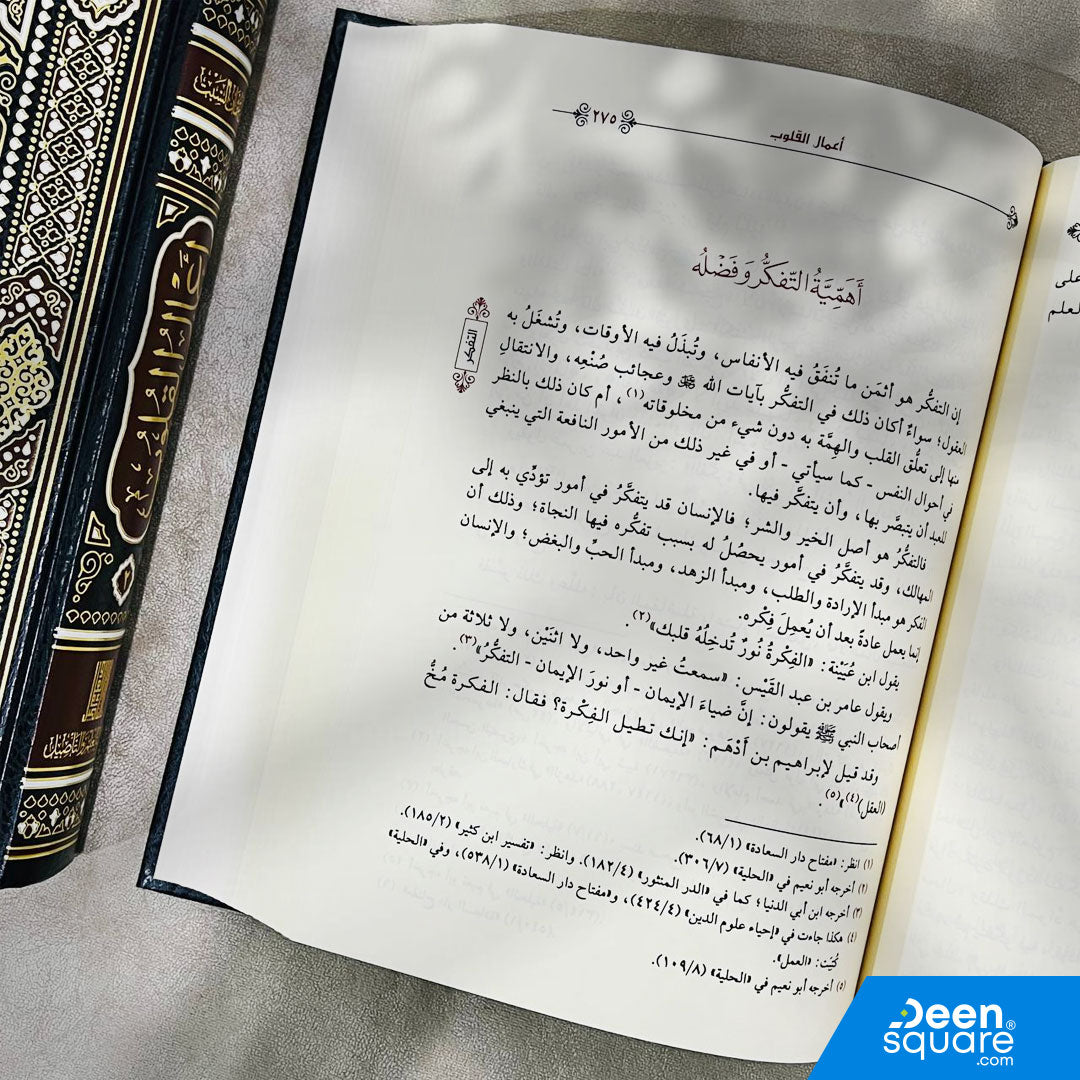 أعمال القلوب
٢٧٥
أَهَمِّيَّةُ التَّفَكُّرُ وَفَضْلُهُ
التفكر
إن التفكُّر هو أثمَن ما تُنفَقُ فيه الأنفاس، وتُبذَلُ فيه الأوقات، وتُشغَلُ به
العقول؛ سواءٌ أكان ذلك في التفكُّر بآيات الله ﷿ وعجائب صُنْعِه، والانتقالِ
منها إلى تعلُّق القلب والهِمَّة به دون شيء من مخلوقاته(١)، أم كان ذلك بالنظر
في أحوال النفس - كما سيأتي - أو في غير ذلك من الأمور النافعة التي ينبغي
للعبد أن يتبصَّر بها، وأن يتفكَّر فيها.
فالتفكُّر هو أصل الخير والشر؛ فالإنسان قد يتفكَّرُ في أمور تؤدِّي به إلى
المهالك، وقد يتفكَّرُ في أمور يحصُلُ له بسبب تفكُّره فيها النجاة؛ وذلك أن
الفكر هو مبدأ الإرادة والطلب، ومبدأ الزهد، ومبدأ الحبِّ والبغض؛ والإنسان
إنما يعمل عادةً بعد أن يُعمِلَ فِكْره.
يقول ابن عُيَيْنة: «الفِكْرةُ نُورٌ تُدخِلُهُ قلبك»(٢).
ويقول عامر بن عبد القَيْس: «سمعتُ غير واحد، ولا اثنَيْن، ولا ثلاثة من
أصحاب النبي ﷺ يقولون: إنَّ ضياءَ الإيمان - أو نورَ الإيمان - التفكُّرُ»(٣).
وقد قيل لإبراهيم بن أَدْهَم: «إنك تطيل الفِكْرة؟ فقال: الفكرة مُخُّ
(العقل)(٤)»(٥).
(١) انظر: «مفتاح دار السعادة» (٦٨/١).
(٢) أخرجه أبو نعيم في «الحلية» (٣٠٦/٧).
(٣) أخرجه ابن أبي الدنيا؛ كما في «الدر المنثور» (١٨٢/٤). وانظر: «تفسير ابن كثير» (١٨٥/٢).
(٤) هكذا جاءت في «إحياء علوم الدين» (٤٢٤/٤)، و«مفتاح دار السعادة» (٥٣٨/١)، وفي «الحلية»
كُتِبَت: «العمل».
(٥) أخرجه أبو نعيم في «الحلية» (١٠٩/٨).
على
لعلم
٢
Deen
square®
.com